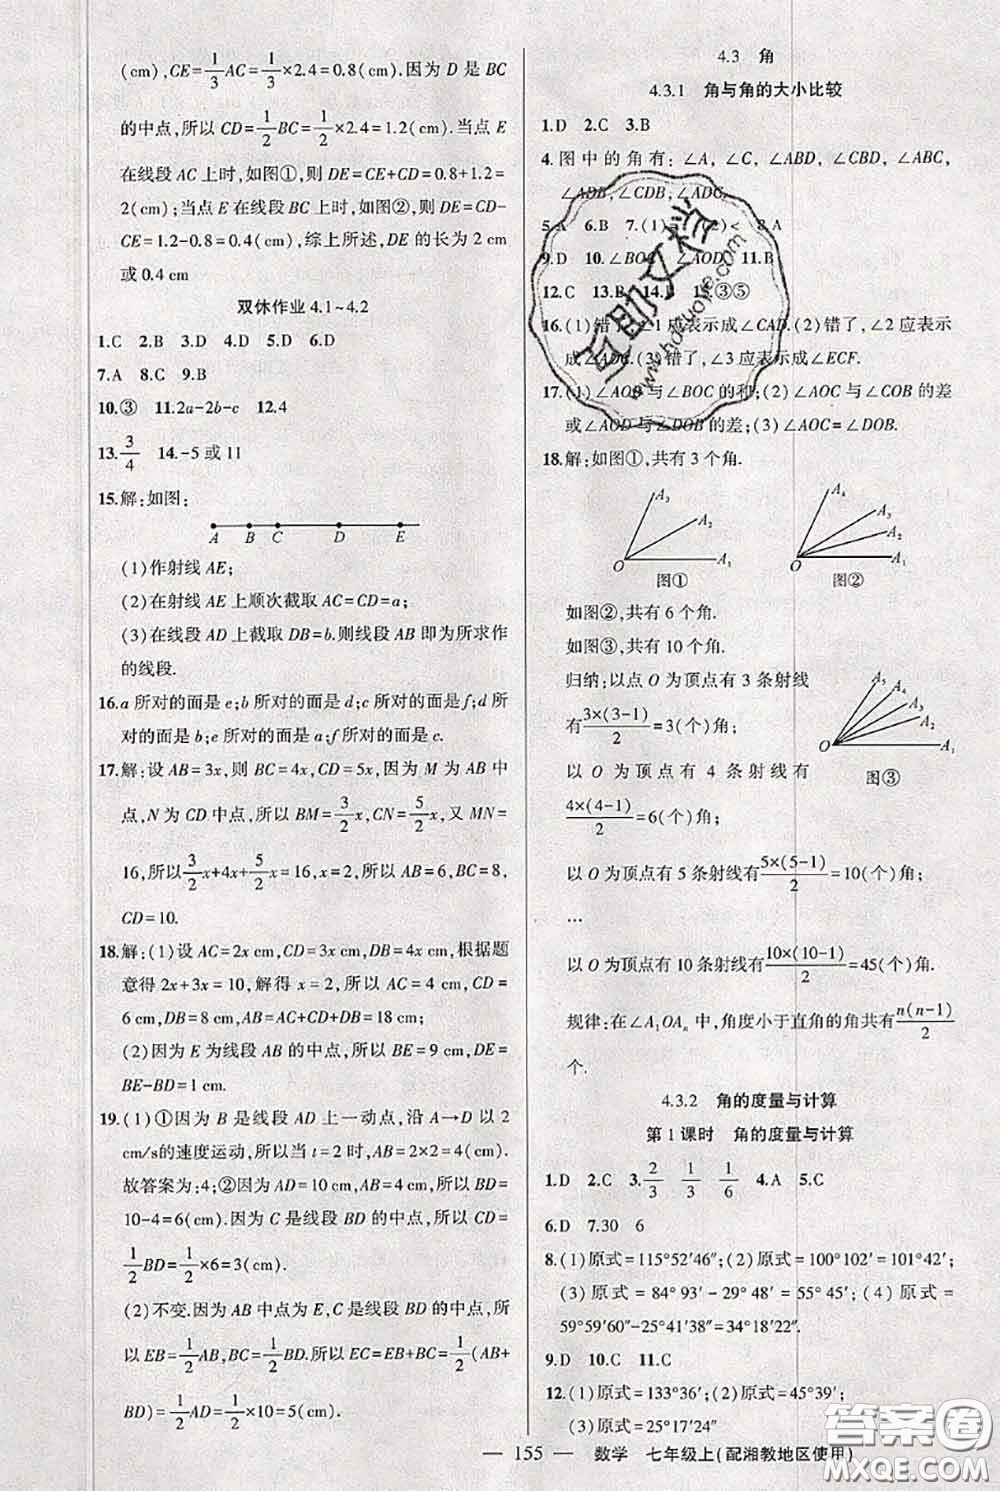 (cm),CE=1/3AC=1/3×2.4=0.8(cm).因为 D 是 BC
的中点,所以 CD=1/2BC=1/2×2.4=1.2(cm).当点 E
在线段 AC 上时,如图①,则 DE=CE+CD=0.8+1.2=
2(cm);当点 E 在线段 BC 上时,如图②,则 DE=CD-
CE=1.2-0.8=0.4(cm),综上所述,DE 的长为 2 cm
或 0.4 cm
双休作业 4.1~4.2
1.C 2.B 3.D 4.D 5.D 6.D
7.A 8.C 9.B
10.③ 11.2a-2b-c 12.4
13.3/4 14.-5 或 11
15.解:如图:
A B C D E
(1)作射线 AE;
(2)在射线 AE 上顺次截取 AC=CD=a;
(3)在线段 AD 上截取 DB=b.则线段 AB 即为所求作
的线段.
16.a 所对的面是 e;b 所对的面是 d;c 所对的面是 f;d 所
对的面是 b;e 所对的面是 a;f 所对的面是 c.
17.解:设 AB=3x,则 BC=4x,CD=5x,因为 M 为 AB 中
点,N 为 CD 中点,所以 BM=3/2x,CN=5/2x,又 MN=
16,所以3/2x+4x+5/2x=16,x=2,所以 AB=6,BC=8,
CD=10.
18.解:(1)设 AC=2x cm,CD=3x cm,DB=4x cm,根据题
意得 2x+3x=10,解得 x=2,所以 AC=4 cm,CD=
6 cm,DB=8 cm,AB=AC+CD+DB=18 cm;
(2)因为 E 为线段 AB 的中点,所以 BE=9 cm,DE=
BE-BD=1 cm.
19.(1)①因为 B 是线段 AD 上一动点,沿 A→D 以 2
cm/s的速度运动,所以当 t=2 时,AB=2×2=4(cm).
故答案为:4;②因为 AD=10 cm,AB=4 cm,所以 BD=
10-4=6(cm).因为 C 是线段 BD 的中点,所以 CD=
1/2BD=1/2×6=3(cm);
(2)不变.因为 AB 中点为 E,C 是线段 BD 的中点,所
以 EB=1/2AB,BC=1/2BD.所以 EC=EB+BC=1/2(AB+
BD)=1/2AD=1/2×10=5(cm).
4.3 角
4.3.1 角与角的大小比较
1.D 2.C 3.B
4.图中的角有:∠A,∠C,∠ABD,∠CBD,∠ABC,
∠ADB,∠CDB,∠ADC.
5.A 6.B 7.(1) (2)< 8.A
9.D 10.∠BOC ∠AOD 11.B
12.C 13.B 14. 15.③⑤
16.(1)错了,∠1 应表示成∠CAD.(2)错了,∠2 应表示
成∠AEC.(3)错了,∠3 应表示成∠ECF.
17.(1)∠AOB 与∠BOC 的和;(2)∠AOC 与∠COB 的差
或∠AOD 与∠DOB 的差;(3)∠AOC=∠DOB.
18.解:如图①,共有 3 个角.
A3 A2 O A1
图①
A4 A3 A2 O A1
图②
如图②,共有 6 个角.
如图③,共有 10 个角.
归纳:以点 O 为顶点有 3 条射线
有3×(3-1)/2=3(个)角;
A5 A4 A3 A2 O A1
图③
以 O 为顶点有 4 条射线有
4×(4-1)/2=6(个)角;
以 O 为顶点有 5 条射线有5×(5-1)/2=10(个)角;
…
以 O 为顶点有 10 条射线有10×(10-1)/2=45(个)角.
规律:在∠A1OAn 中,角度小于直角的角共有n(n-1)/2
个.
4.3.2 角的度量与计算
第 1 课时 角的度量与计算
1.D 2.C 3.2/3 1/3 1/6 4.A 5.C
6.D 7.30 6
8.(1)原式=115°52′46″;(2)原式=100°102′=101°42′;
(3)原式=84°93′-29°48′=55°45′;(4)原式=
59°59′60″-25°41′38″=34°18′22″.
9.D 10.C 11.C
12.(1)原式=133°36′;(2)原式=45°39′;
(3)原式=25°17′24″
— 155 — 数学 七年级上(配湘教地区使用)
互助文档
www.hdzuoye.com
答案圈
MXQE.COM